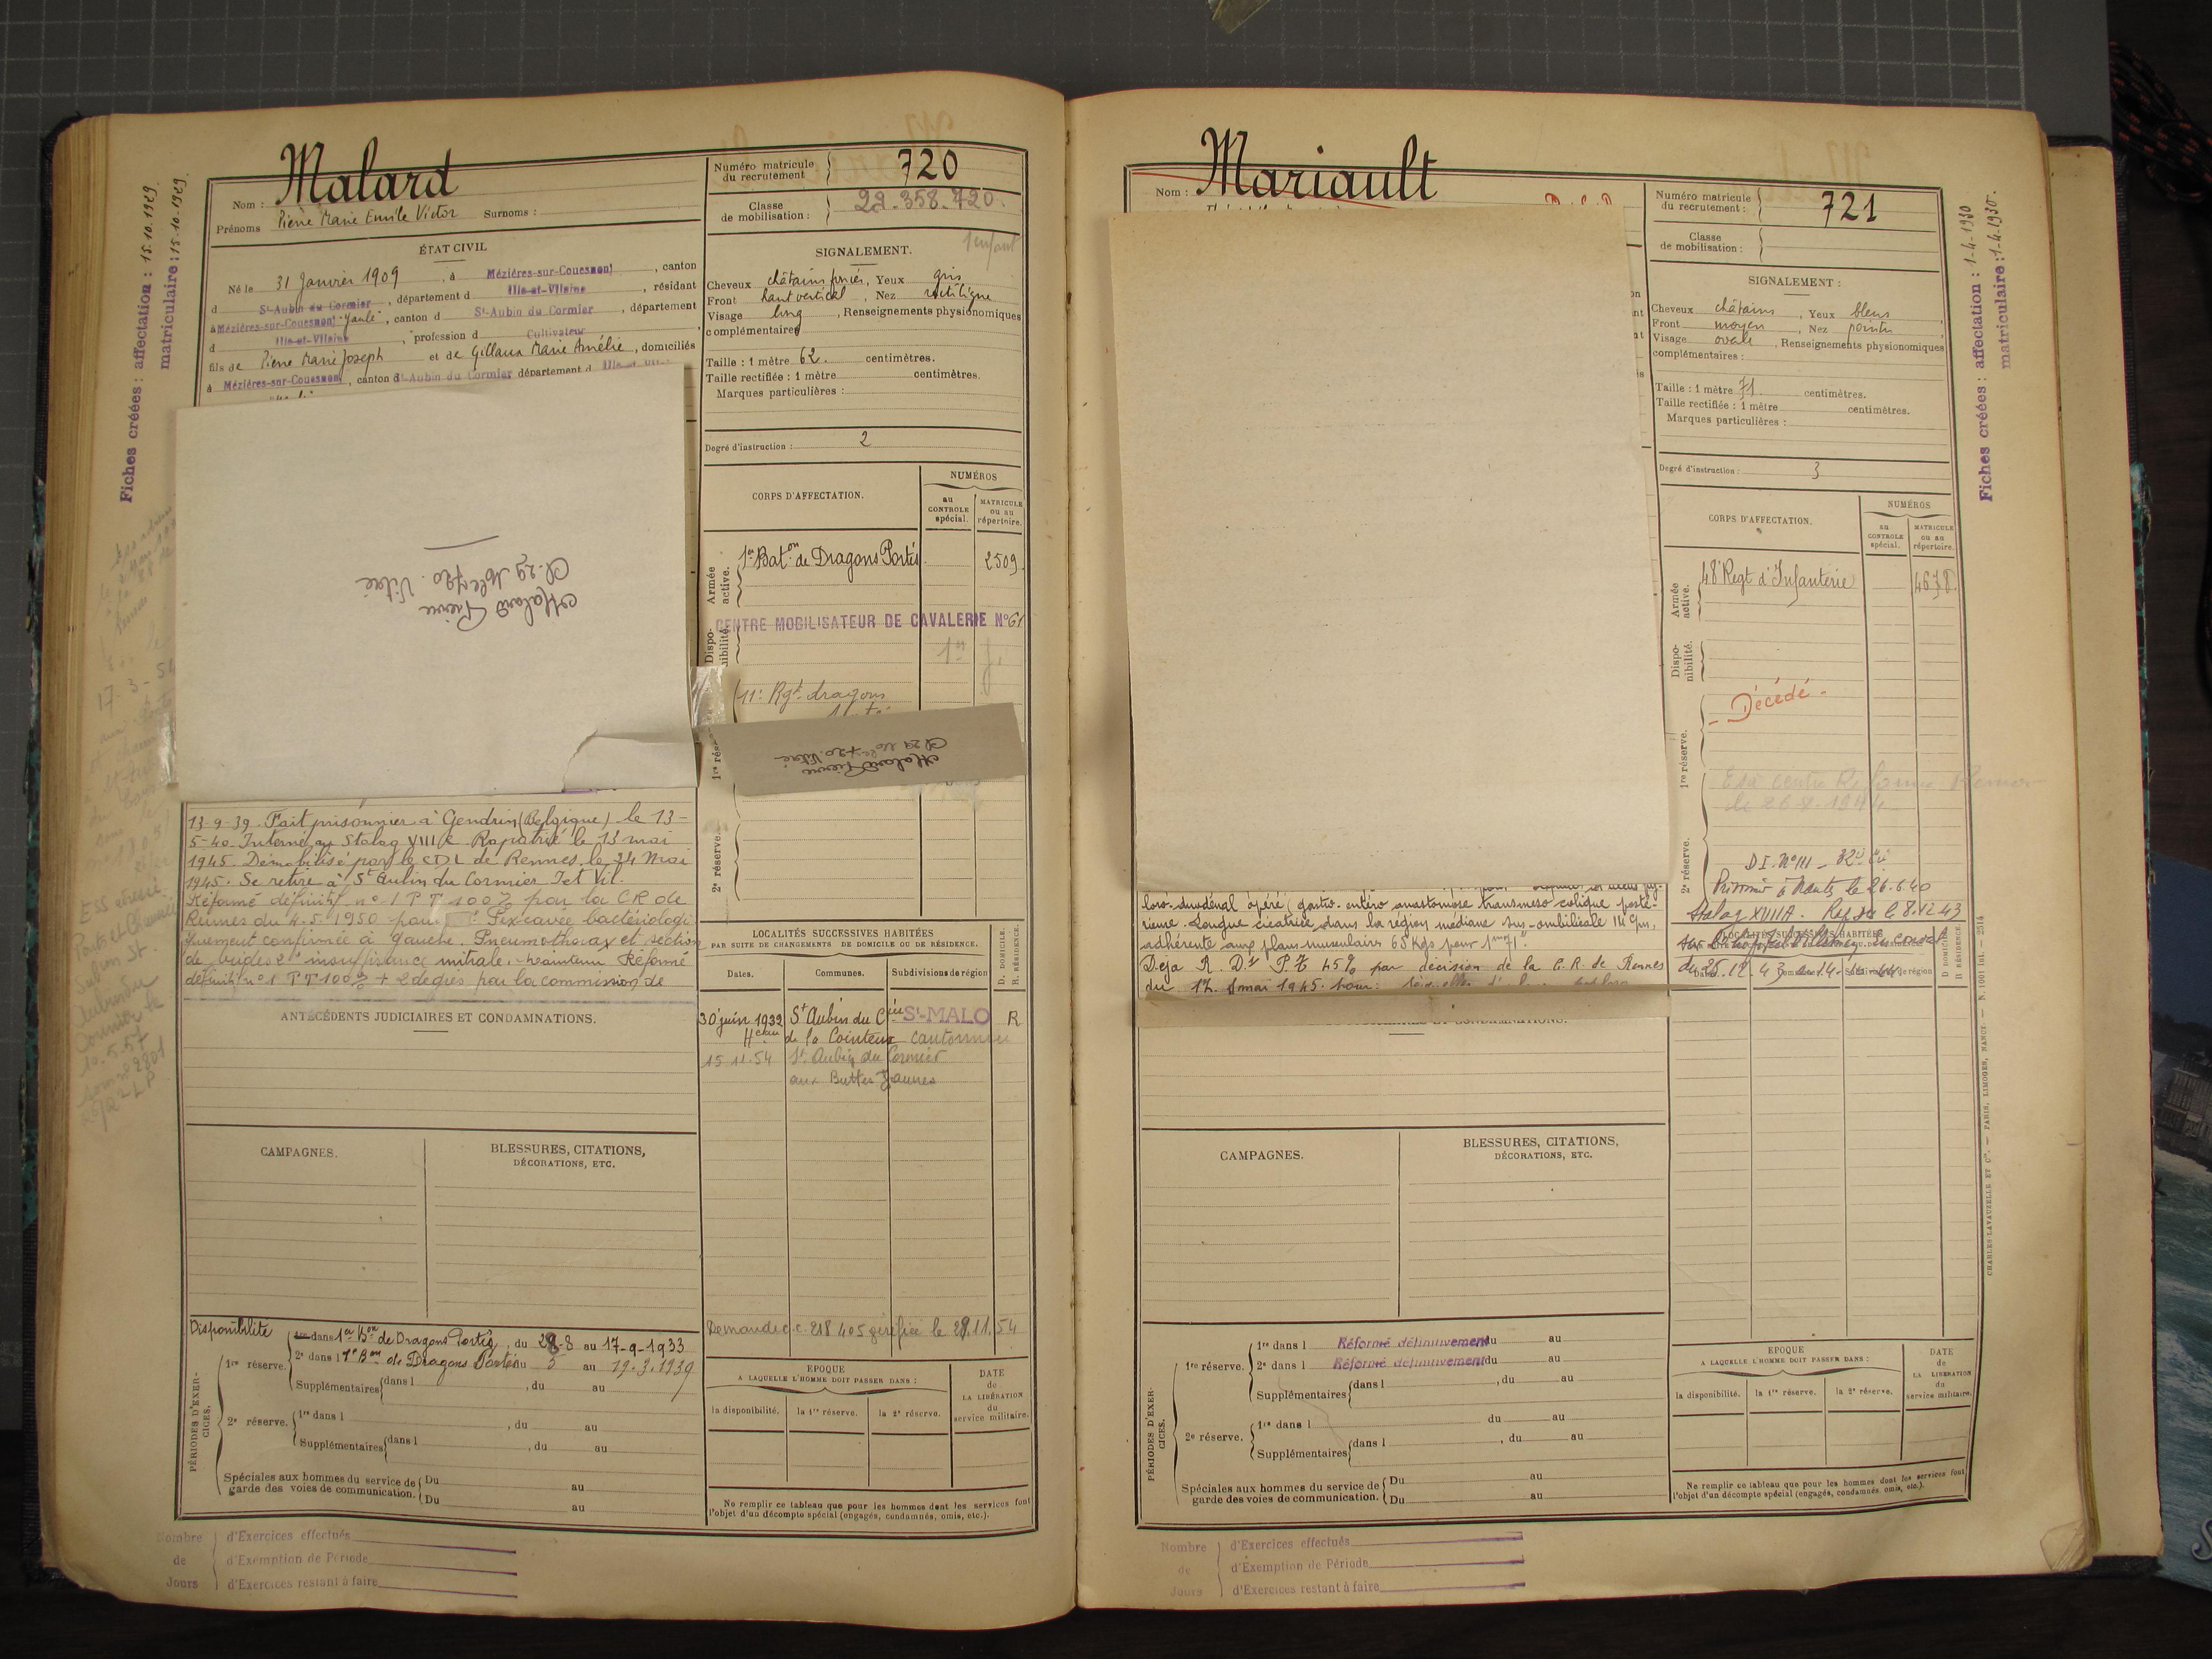 Fiches créées : affectation : 15.10.1929.
matriculaire : 15-10-1929.
Nom : Malard
Prénoms Pierre Marie Emile Victor Surnoms :
ÉTAT CIVIL
Né le 31 Janvier 1909, à Mézières-sur-Couesnon, canton
d St-Aubin du Cormier, département d Ille-et-Vilaine, résidant
à Mézières-sur-Couesnon, canton d St-Aubin du Cormier, département
d Ille-et-Vilaine, profession d Cultivateur
fils de Pierre Marie Joseph et de Gillaux Marie Amélie, domiciliés
à Mézières-sur-Couesnon, canton d St-Aubin du Cormier département d
Malard Pierre
Cl. 29 Mle 720. Vitré
13-9-39. Fait prisonnier à Gendrin (Belgique) le 13-
5-40. Interné au Stalag VIII C. Rapatrié le 13 mai
1945. Démobilisé par le CDL de Rennes, le 24 Mai
1945. Se retire à St Aubin du Cormier I et Vil.
Réformé définitif n° 1 P T 100% par la CR de
Rennes du 4.5.1950 pour bactériologi
quement confirmée à gauche. Pneumothorax et section
de brides 2° insuffisance mitrale. maintenu Réformé
définitif n° 1 PT 100% + 2 degrés par la commission de
ANTÉCÉDENTS JUDICIAIRES ET CONDAMNATIONS.
CAMPAGNES.
BLESSURES, CITATIONS,
DÉCORATIONS, ETC.
Disponibilité
PÉRIODES D'EXERCICES.
1re réserve.
1re dans 1er Bon de Dragons Portés, du 28-8 au 17-9-1933
2e dans l 1er Bon de Dragons Portés du 5 au 19.3.1939
Supplémentaires dans l , du au
2e réserve.
1re dans l , du au
Supplémentaires dans l , du au
Spéciales aux hommes du service de
garde des voies de communication.
Du au
Du au
Nombre de Jours
d'Exercices effectués
d'Exemption de Période
d'Exercices restant à faire
Numéro matricule
du recrutement 720
Classe
de mobilisation : 22-358-720.
1 enfant
SIGNALEMENT.
Cheveux châtains foncés, Yeux gris
Front haut vertical, Nez rectiligne
Visage long, Renseignements physionomiques
complémentaires
Taille : 1 mètre 62. centimètres.
Taille rectifiée : 1 mètre centimètres.
Marques particulières :
Degré d'instruction : 2
CORPS D'AFFECTATION.
NUMÉROS
au
CONTROLE
spécial.
MATRICULE
ou au
répertoire.
Armée
active.
1er Baton de Dragons Portés. 2509.
Dispo-
nibilité.
CENTRE MOBILISATEUR DE CAVALERIE N° 61
11e Rgt. dragons
Malard Pierre
Cl 29 Mle 720. Vitré
2e réserve.
LOCALITÉS SUCCESSIVES HABITÉES
PAR SUITE DE CHANGEMENTS DE DOMICILE OU DE RÉSIDENCE.
D. DOMICILE.
R. RÉSIDENCE.
Dates. Communes. Subdivisions de région
30 juin 1932 St Aubin du Cier St-MALO R
de la Cointeux cantonnier
15.11.54 St Aubin du Cormier
aux Buttes Jaunes
Demande c.c. 218405 vérifiée le 29.11.54
EPOQUE
A LAQUELLE L'HOMME DOIT PASSER DANS :
la disponibilité. la 1re réserve. la 2e réserve.
DATE
de
LA LIBÉRATION
du
service militaire.
Ne remplir ce tableau que pour les hommes dont les services font
l'objet d'un décompte spécial (engagés, condamnés, omis, etc.).
Nom : Mariault
lore-duodénal opéré (gastro-entéro anastomose transmeso colique posté-
rieure. Longue cicatrice dans la région médiane sus-ombilicale 14 cm,
adhérente aux plans musculaires 65 Kgs pour 1m71".
Déja R. Df P.T 45% par décision de la C.R. de Rennes
du 17 mai 1945. pour:
CAMPAGNES.
BLESSURES, CITATIONS,
DÉCORATIONS, ETC.
PÉRIODES D'EXERCICES.
1re réserve.
1re dans l Réformé définitivement du au
2e dans l Réformé définitivement du au
Supplémentaires dans l , du au
2e réserve.
1re dans l du au
Supplémentaires dans l , du au
Spéciales aux hommes du service de
garde des voies de communication.
Du au
Du au
Nombre de Jours
d'Exercices effectués
d'Exemption de Période
d'Exercices restant à faire
Numéro matricule
du recrutement : 721
Classe
de mobilisation :
SIGNALEMENT :
Cheveux châtains, Yeux bleus
Front moyen, Nez pointu
Visage ovale, Renseignements physionomiques
complémentaires :
Taille : 1 mètre 71 centimètres.
Taille rectifiée : 1 mètre centimètres.
Marques particulières :
Degré d'instruction : 3
CORPS D'AFFECTATION.
NUMÉROS
au
CONTROLE
spécial.
MATRICULE
ou au
répertoire.
Armée
active.
48e Regt d'Infanterie 4678
Dispo-
nibilité.
- Décédé -
1re réserve.
centre Réforme Rennes
le 26.8.1944
2e réserve.
D.I. N° III
Prisonnier à Nantes le 26.6.40
Stalag XVIII A. 8.12.43
LOCALITÉS SUCCESSIVES HABITÉES
D. DOMICILE
R. RÉSIDENCE.
EPOQUE
A LAQUELLE L'HOMME DOIT PASSER DANS :
la disponibilité. la 1re réserve. la 2e réserve.
DATE
de
LA LIBÉRATION
du
service militaire.
Ne remplir ce tableau que pour les hommes dont les services font
l'objet d'un décompte spécial (engagés, condamnés, omis, etc.).
Fiches créées : affectation : 1-4-1930
matriculaire : 1-4-1930.
CHARLES-LAVAUZELLE ET Cie. — PARIS, LIMOGES, NANCY. — N. 1001 int. — 2514